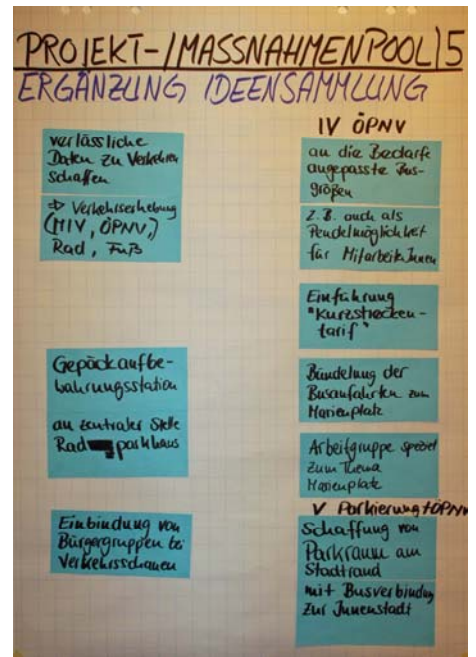 PROJEKT-/MASSNAHMENPOOL 5
ERGÄNZUNG IDEENSAMMLUNG
verlässliche
Daten zu Verkehren
schaffen
=> Verkehrserhebung
(MIV, ÖPNV,)
Rad, Fuß
Gepäckaufbe-
wahrungsstation
an zentraler Stelle
Rad parkhaus
Einbindung von
Bürgergruppen bei
Verkehrsschauen
IV ÖPNV
an die Bedarfe
angepasste Bus-
größen
Z.B. auch als
Pendelmöglichkeit
für MitarbeiterInnen
Einführung
"Kurzstrecken-
tarif"
Bündelung der
Busanfahrten zum
Marienplatz
Arbeitgruppe speziel
zum Thema
Marienplatz
V Parkierung+ÖPNV
Schaffung von
Parkraum am
Stadtrand
mit Busverbindung
zur Innenstadt